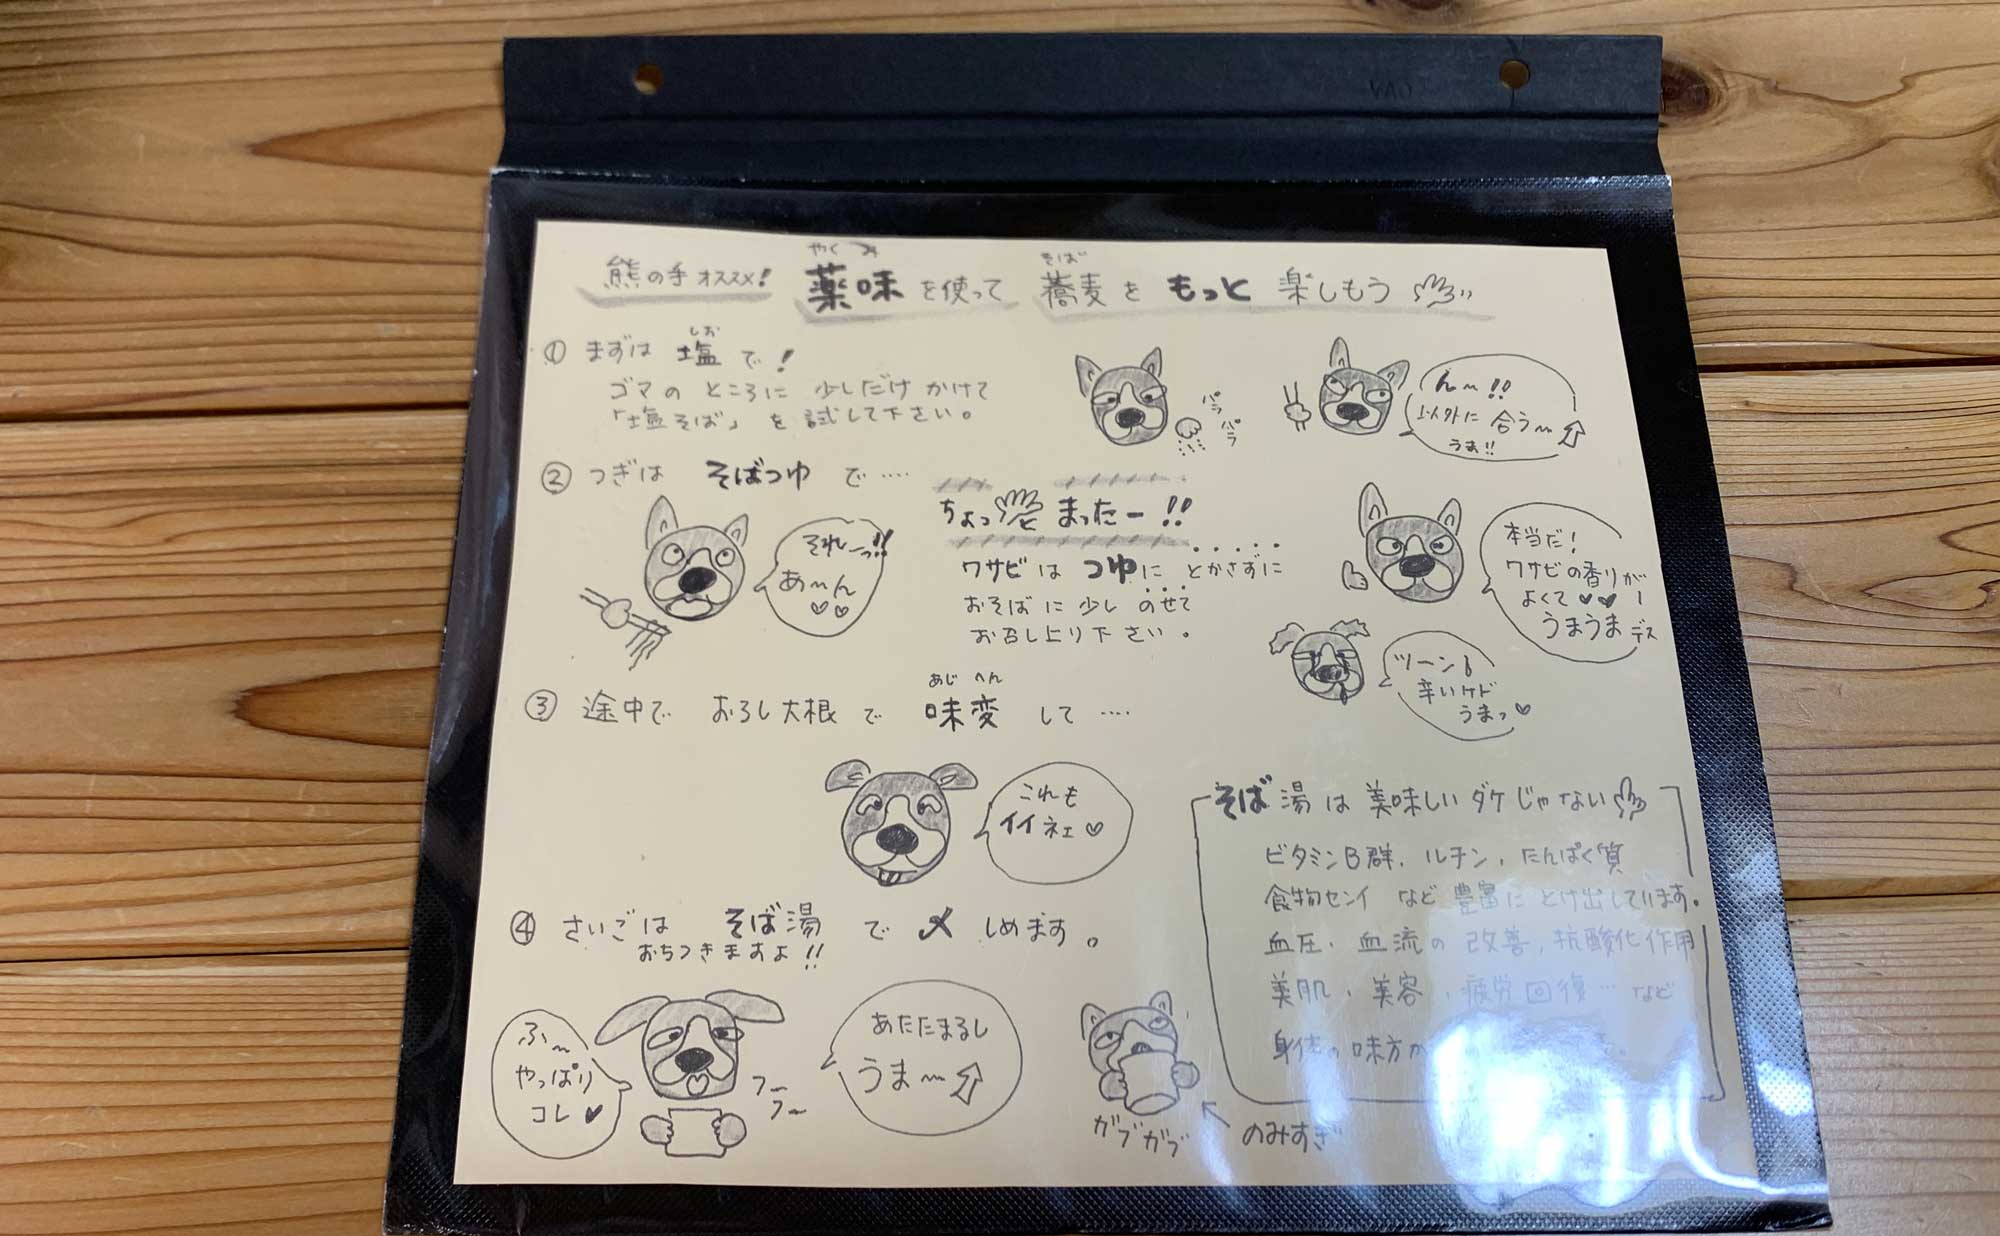 熊の手オススメ! 薬味を使って蕎麦をもっと楽しもう
やくみ
そば
① まずは塩で!
しお
ゴマのところに少しだけかけて
「塩そば」を試して下さい。
パラ
パラ
んー!!
以外に合う〜
うま!!
② つぎはそばつゆで‥‥
それーっ!!
あ〜ん
ちょっと まったー!!
ワサビはつゆにとかさずに
おそばに少しのせて
お召し上り下さい。
本当だ!
ワサビの香りが
よくて♥♥
うまうまデス
ツーン
辛いケド
うまっ♡
③ 途中でおろし大根で味変して‥‥
あじへん
これも
イイネェ♡
④ さいごはそば湯で〆しめます。
おちつきますよ!!
ふ〜
やっぱり
コレ♥
フー
フ〜
あたたまるし
うま〜
ガブガブ
のみすぎ
そば湯は美味しいダケじゃない
ビタミンB群、ルチン、たんぱく質
食物センイなど豊富にとけ出しています。
血圧、血流の改善,抗酸化作用
美肌、美容、疲労回復…など
身体の味方が